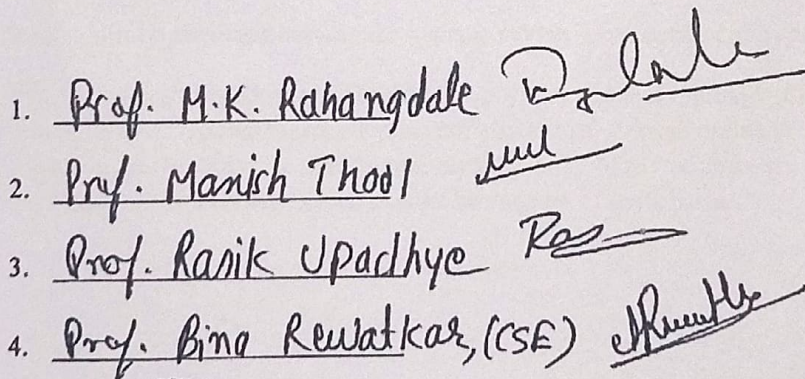 1. Prof. M.K. Rahangdale
2. Prof. Manish Thool
3. Prof. Rasik Upadhye
4. Prof. Bina Rewatkar, (CSE)